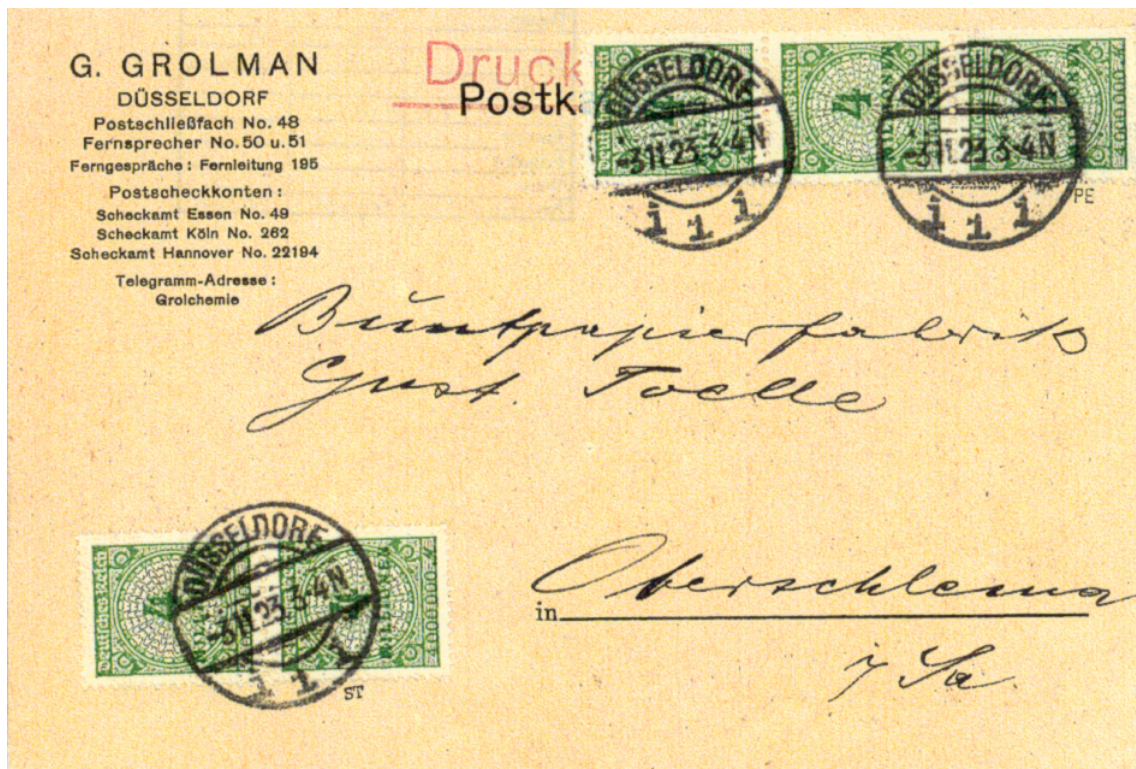 G. GROLMAN
DÜSSELDORF
Postschließfach No. 48
Fernsprecher No. 50 u. 51
Ferngespräche: Fernleitung 195
Postscheckkonten:
Scheckamt Essen No. 49
Scheckamt Köln No. 262
Scheckamt Hannover No. 22194
Telegramm-Adresse:
Grolchemie
Druck
Postk
DÜSSELDORF
-3.11.23.3-4N
1 1 1
4
DÜSSELDORF
-3.11.23.3-4N
1 1 1
PE
Buntpapierfabrik
Gust. Toelle
DÜSSELDORF
-3.11.23.3-4N
1 1 1
Deutsches Reich
4
ST
in Oberschlema
i/Sa.